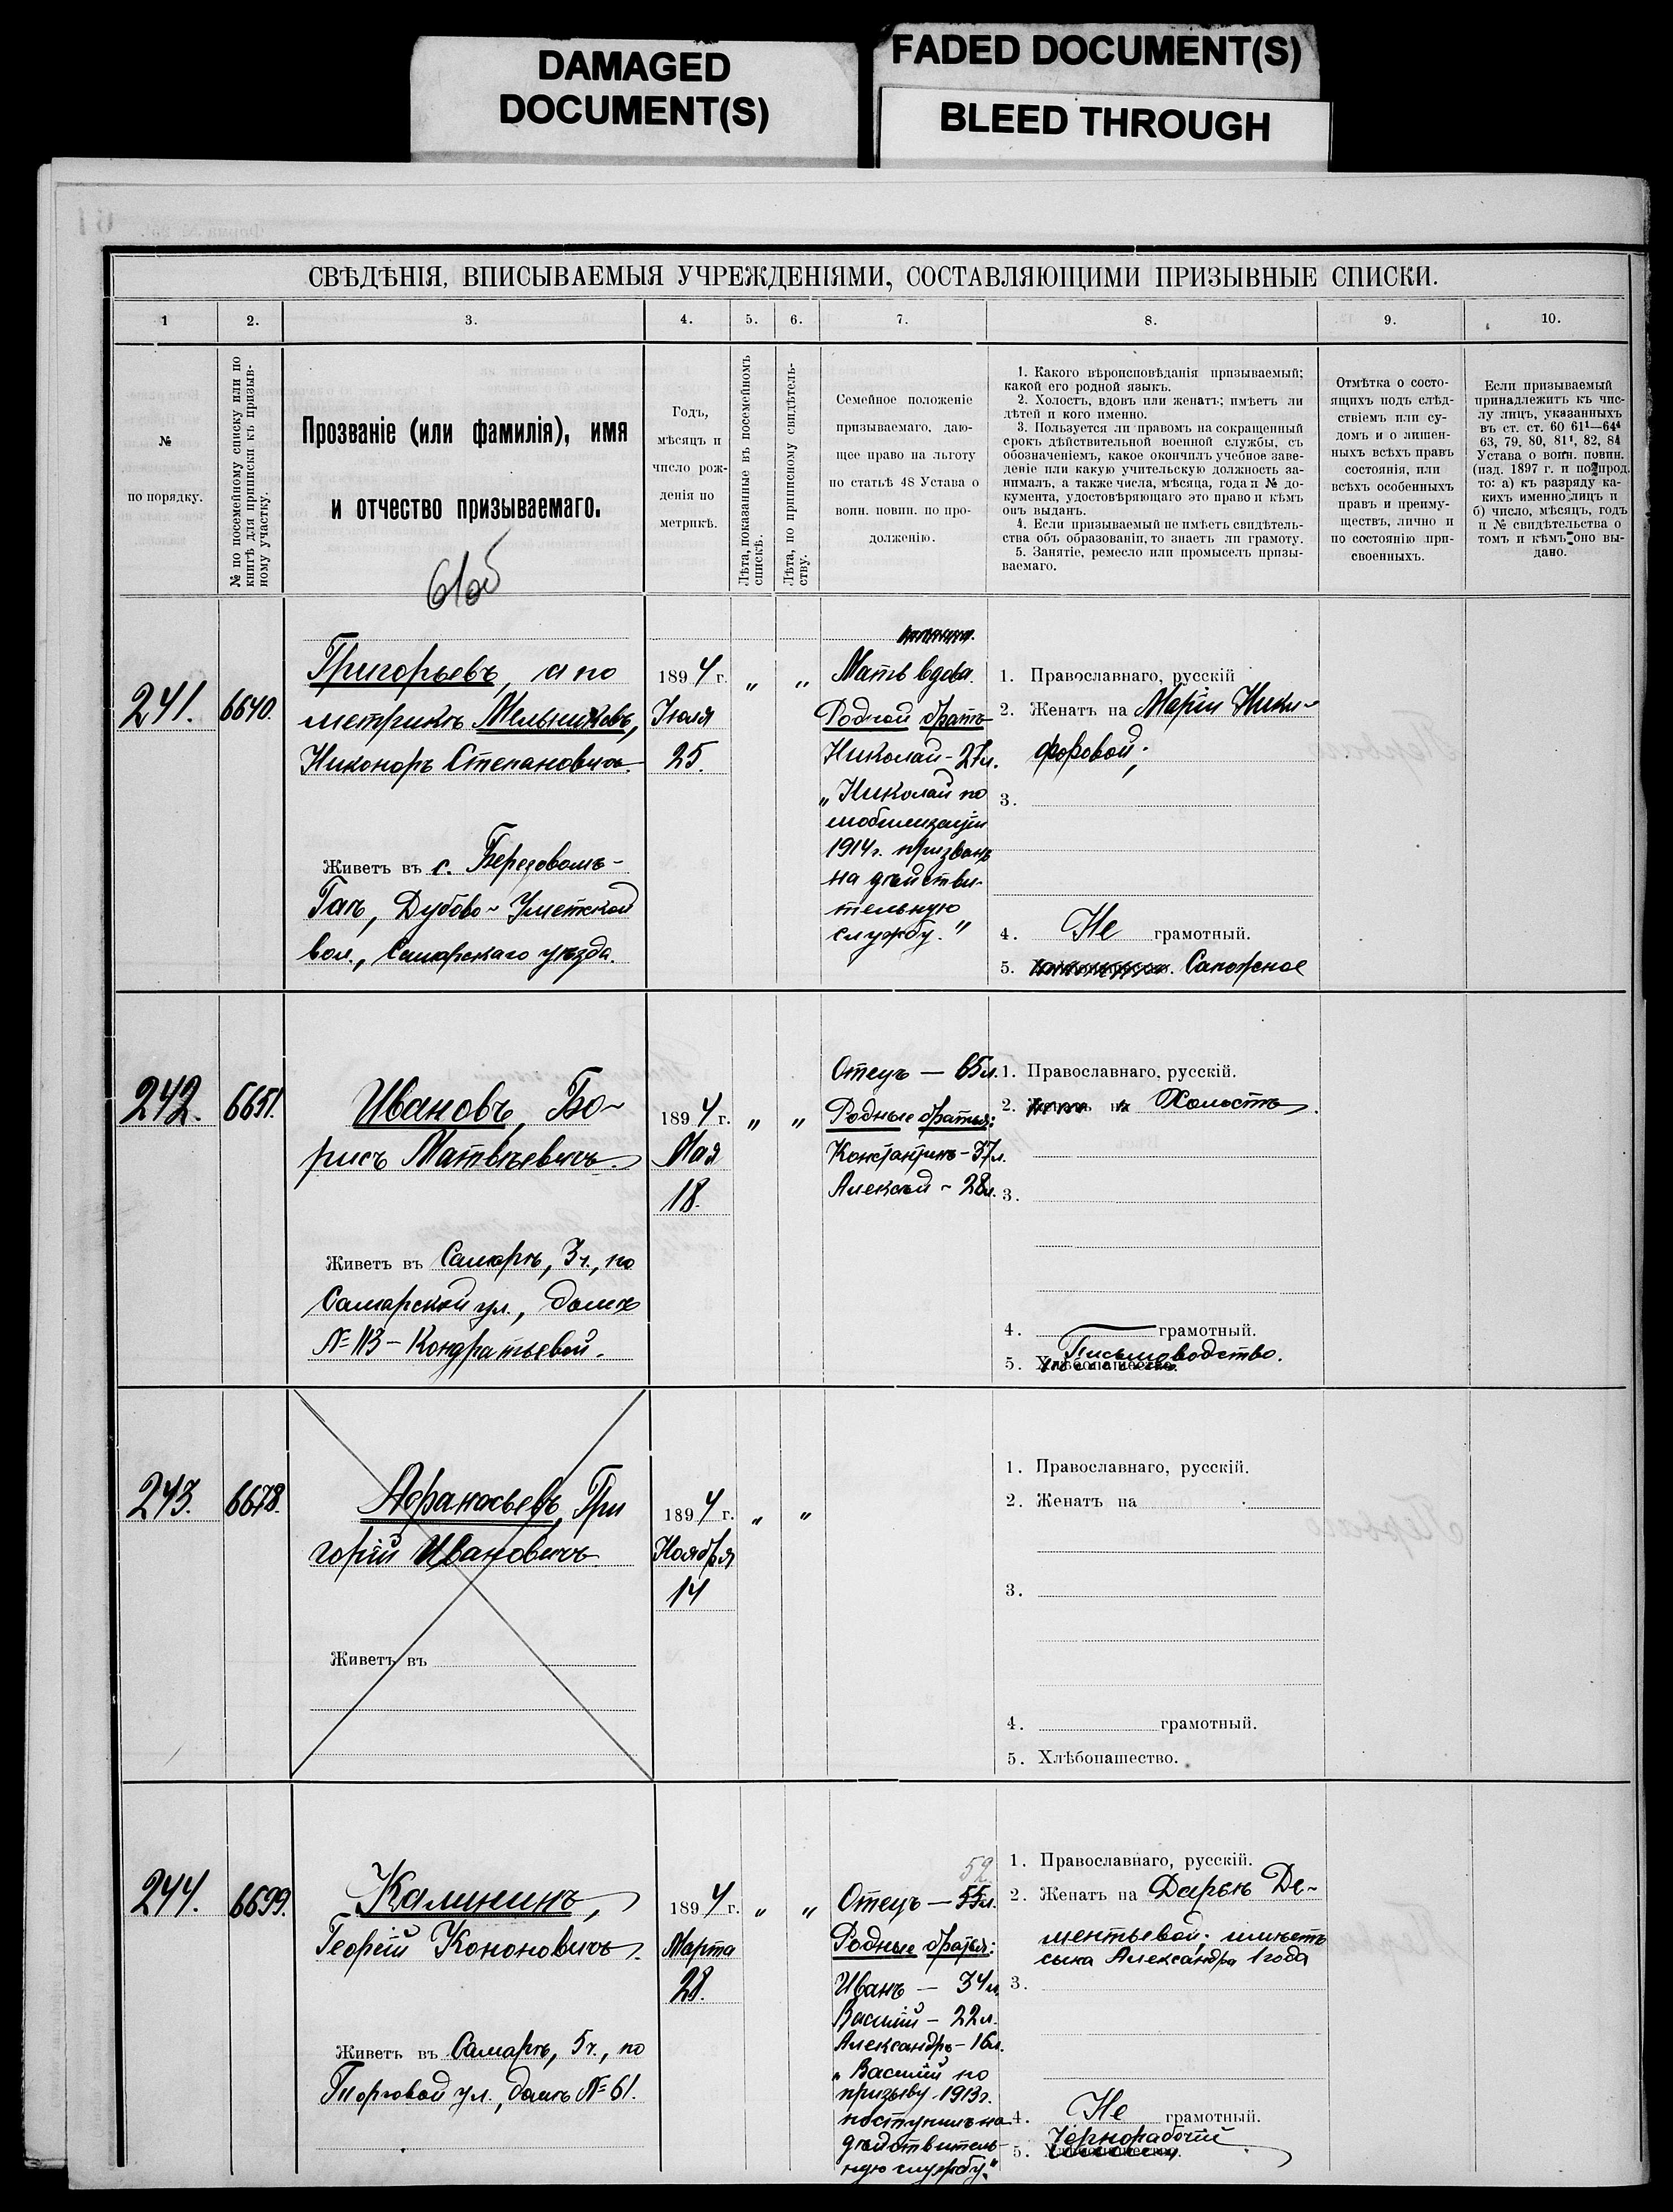 DAMAGED
DOCUMENT(S)
FADED DOCUMENT(S)
BLEED THROUGH
СВѢДѢНІЯ, ВПИСЫВАЕМЫЯ УЧРЕЖДЕНІЯМИ, СОСТАВЛЯЮЩИМИ ПРИЗЫВНЫЕ СПИСКИ.
1 2. 3. 4. 5. 6. 7. 8. 9. 10.
№
по порядку.
№ по посемейному списку или по
книгѣ для приписки къ призыв-
ному участку.
Прозваніе (или фамилія), имя
и отчество призываемаго.
61об
Годъ,
мѣсяцъ и
число рож-
денія по
метрикѣ.
Лѣта, показанные въ посемейномъ
спискѣ.
Лѣта, по приписному свидѣтель-
ству.
Семейное положеніе
призываемаго, даю-
щее право на льготу
по статьѣ 48 Устава о
воин. повин. по про-
долженію.
1. Какого вѣроисповѣданія призываемый;
какой его родной языкъ.
2. Холостъ, вдовъ или женатъ; имѣетъ ли
дѣтей и кого именно.
3. Пользуется ли правомъ на сокращенный
срокъ дѣйствительной военной службы, съ
обозначеніемъ, какое окончилъ учебное заве-
деніе или какую учительскую должность за-
нималъ, а также числа, мѣсяца, года и № до-
кумента, удостовѣряющаго это право и кѣмъ
онъ выданъ.
4. Если призываемый не имѣетъ свидѣтель-
ства объ образованіи, то знаетъ ли грамоту.
5. Занятіе, ремесло или промыселъ призы-
ваемаго.
Отмѣтка о состо-
ящихъ подъ слѣд-
ствіемъ или су-
домъ и о лишен-
ныхъ всѣхъ правъ
состоянія, или
всѣхъ особенныхъ
правъ и преиму-
ществъ, лично и
по состоянію при-
своенныхъ.
Если призываемый
принадлежитъ къ чис-
лу лицъ, указанныхъ
въ ст. ст. 60 61¹—64⁴
63, 79, 80, 81¹, 82, 84
Устава о воин. повин.
(изд. 1897 г. и по прод.
то: а) къ разряду ка-
кихъ именно лицъ и
б) число, мѣсяцъ, годъ
и № свидѣтельства о
томъ и кѣмъ оно вы-
дано.
241. 6640.
Григорьевъ, а по
метрикѣ Мельниковъ,
Никоноръ Степановичъ.
Живетъ въ с. Березовомъ-
Гаѣ, Дубово-Уметской
вол., Самарскаго уѣзда.
1894 г.
Іюля
25.
" "
Мать вдова.
Родной братъ
Николай - 27л.
"Николай по
мобилизаціи
1914 г. призванъ
на дѣйстви-
тельную
службу."
1. Православнаго, русскій
2. Женатъ на Маріи Ники-
форовой;
3.
4. Не грамотный.
5. Сапожное
242. 6651.
Ивановъ, Бо-
рисъ Матвѣевичъ.
Живетъ въ Самарѣ, 3ч., по
Самарской ул., домъ
№ 113 - Кондратьевой.
1894 г.
Мая
18.
" "
Отецъ — 65л.
Родные братья:
Константинъ - 37л.
Алексѣй - 28л.
1. Православнаго, русскій.
2. Женатъ на Холостъ.
3.
4. грамотный.
Письмоводство.
5. Хлѣбопашество.
243. 6678.
Афанасьевъ, Гри
горій Ивановичъ
Живетъ въ
1894 г.
Ноября
14
" "
1. Православнаго, русскій.
2. Женатъ на
3.
4. грамотный.
5. Хлѣбопашество.
244. 6699.
Калининъ,
Георгій Кононовичъ.
Живетъ въ Самарѣ, 5ч., по
Торговой ул., домъ № 61.
1894 г.
Марта
28.
" "
52
Отецъ — 55л.
Родные братья:
Иванъ — 34л.
Василій - 22л.
Александръ - 16л.
"Василій по
призыву 1913г.
поступилъ на
дѣйствитель-
ную службу."
1. Православнаго, русскій.
2. Женатъ на Дарьѣ Де-
ментьевой; имѣетъ
сына Александра 1 года
3.
4. Не грамотный.
Чернорабочій
5. Хлѣбопашество.